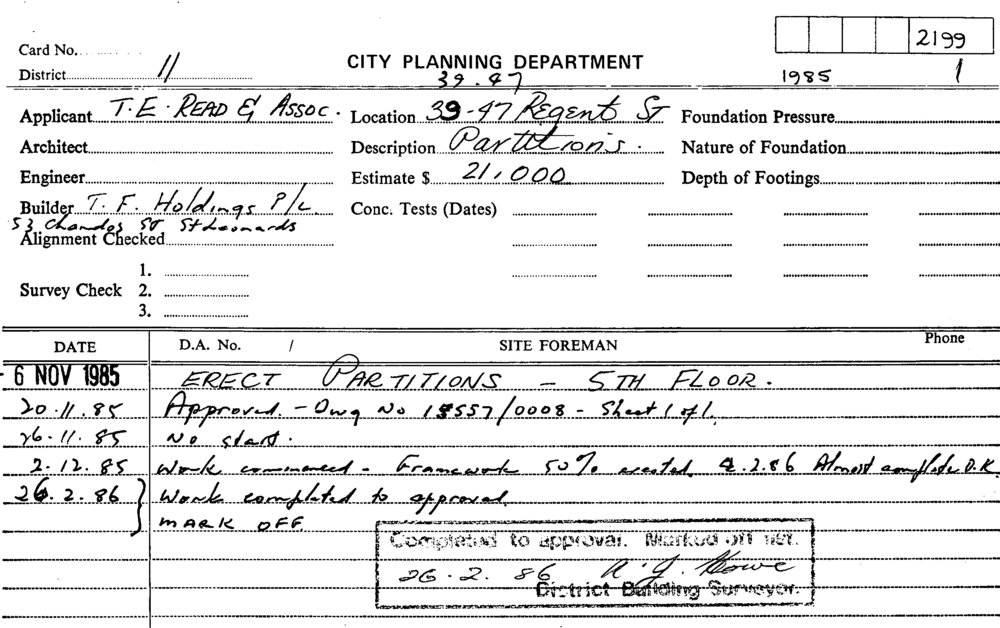 2199
Card No.
District 11
CITY PLANNING DEPARTMENT
1985 1
39-47
Applicant T.E. READ & ASSOC. Location 39-47 Regent St Foundation Pressure
Architect Description Partitions. Nature of Foundation
Engineer Estimate $ 21,000 Depth of Footings
Builder T. F. Holdings P/L Conc. Tests (Dates)
53 Chandos St St Leonards
Alignment Checked
1.
Survey Check 2.
3.
DATE D.A. No. / SITE FOREMAN Phone
- 6 NOV 1985 ERECT PARTITIONS - 5TH FLOOR.
20.11.85 Approved - Dwg No 15557/0008 - Sheet 1 of 1.
26.11.85 No start.
2.12.85 Work commenced - Framework 50% erected. 2.2.86 Almost complete O.K.
26.2.86 } Work completed to approval.
MARK OFF.
Completed to approval. Marked off
26.2.86 Howe
District Building Surveyor.